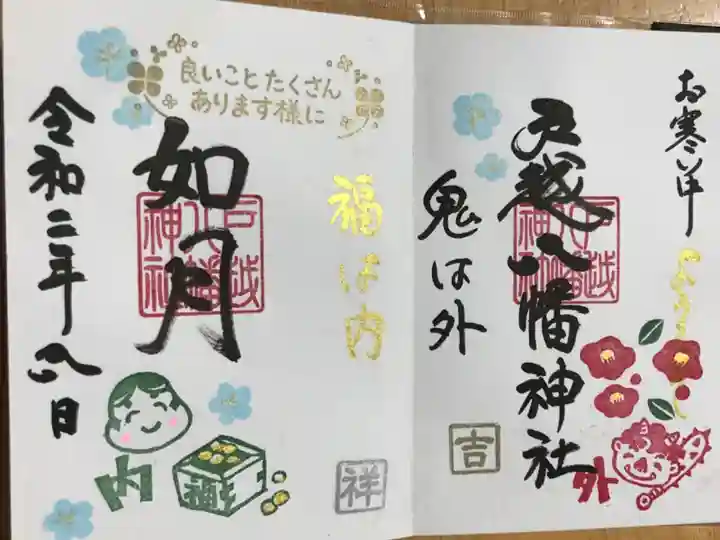 お寒い中
ようこそ
戸越八幡神社
戸越八幡神社
鬼は外
外
吉
良いことたくさん
あります様に
福は内
如月
戸越八幡神社
令和二年 八日
内
福
祥